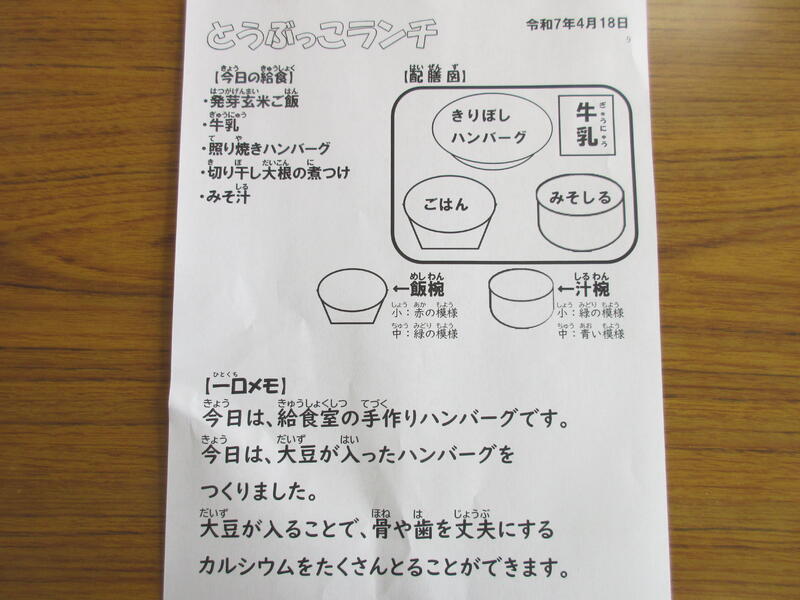 とうぶっこランチ
令和7年4月18日
【今日の給食】
・発芽玄米ご飯
・牛乳
・照り焼きハンバーグ
・切り干し大根の煮つけ
・みそ汁
【配膳図】
きりぼし
ハンバーグ
牛乳
ごはん
みそしる
←飯椀
小：赤の模様
中：緑の模様
←汁椀
小：緑の模様
中：青い模様
【一口メモ】
今日は、給食室の手作りハンバーグです。
今日は、大豆が入ったハンバーグを
つくりました。
大豆が入ることで、骨や歯を丈夫にする
カルシウムをたくさんとることができます。